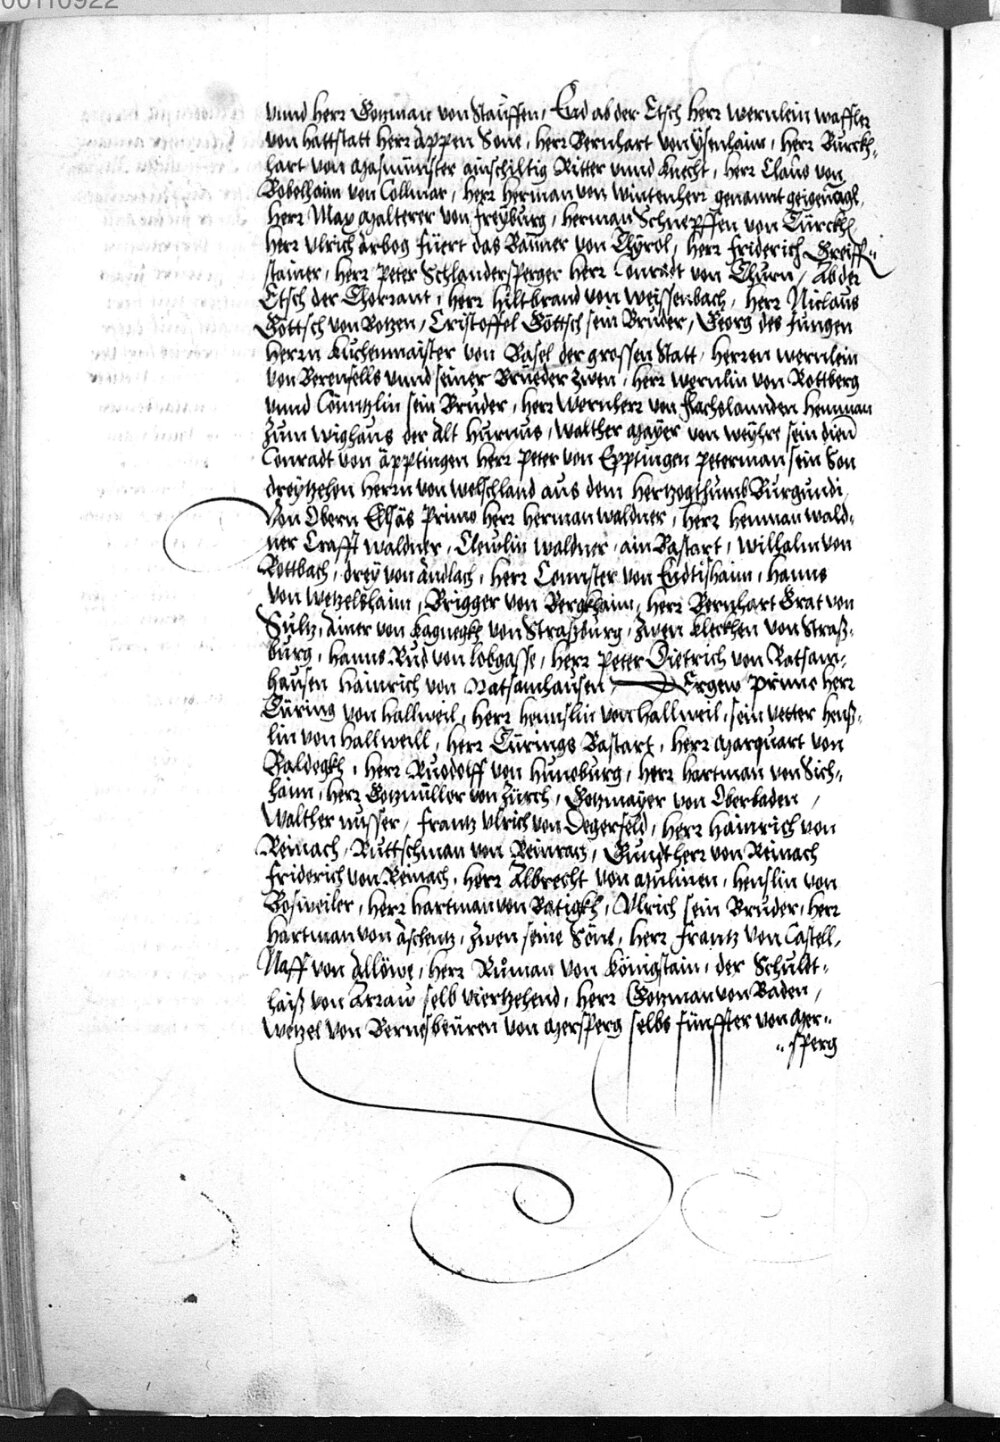 00110922
vnnd herr Gotzman von Stauffen, End ab der Etsch herr wernlein waffler
von hattstatt herr Appen Sone, herr Bernhart von ysenhaim, herr Burckh-
hart von Masmünster ainschiltig Ritter vnnd knecht, herr Claus von
Bobelhaim von Collmar, herr herman von wintenherr genannt geigenagl,
herr Max Malterer von freyburg, herman Schnepffen von Türckh
herr vlrich Arbog füert das Banner von Thyrol, herr friderich Greiff-
stainer, herr Peter Schlandersperger herr Conradt von Thurn, Ab der
Etsch der Thorrant, herr hiltbrand von weissenbach, herr Niclaus
Göttsch von Botzen, Cristoffel Göttsch sein Bruder, Georg des Jungen
herrn kuchenmaister von Basel der grossen Statt, herren wernlein
von Berenfells vnnd seiner Brueder zwen, herr wernlin von Rottberg
vnnd Cönntzlin sein Bruder, herr wernherr von flachslannden hemman
zum wighaus der alt hurnus, walther Mayer von weyhre sein dien
Conradt von äpptingen herr Peter von Epptingen Peterman sein Son
dreytzehen herrn von welschland aus dem hertzogthumb Burgundi
Von Obern Elsäs Primo herr herman waldner, herr hemman wald-
ner Crafft waldner, Clewlin waldner, ain Bastart, wilhalm von
Rottbach, drey von Andlach, herr Connster von Endtishaim, hanns
von wetzelshaim, Brigger von Bergkhaim, herr Bernhart Grat von
Sultz, Ainer von kagnegkh von Strasburg, zwen klerkhen von Straß-
burg, hanns Rud von lobgasse, herr Peter Dietrich von Ratsam-
hausen hainrich von Ratsamhausen Ergew Primo herr
Türing von hallweil, herr hennslin von hallweil, sein vetter henß-
lin von hallweill, herr Türings Bastart, herr Marquart von
Baldegkh, herr Ruodolff von hunoburg, herr hartman von Sich-
haim, herr Gotzmüller von Zürch, Gotzmayer von Oberbaden,
walther nusser, frantz vlrich von Degerfeld, herr hainrich von
Reinach, Ruttschman von Reinach, Gundtherr von Reinach
friderich von Reinach, herr Albrecht von Mulinen, henslin von
Bosweiler, herr hartman von Batigkh, Vlrich sein Bruder, herr
hartman von äschentz, zwen seine Söne, herr frantz von Castell,
Naff von Allöwe, herr Ruman von königstain, der Schuldt-
haiß von Arraw selb viertzehend, herr Gotzman von Baden,
wetzel von Bernesbeuren von Mersperg selbs fünffter von Mer-
sperg